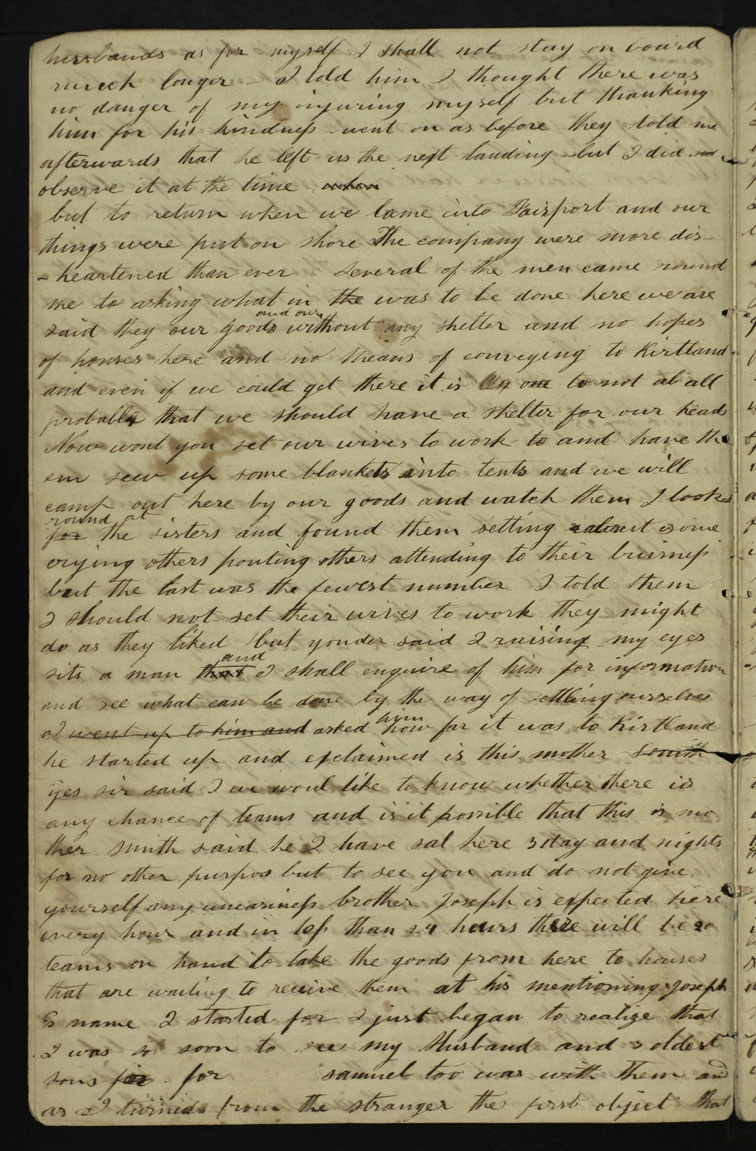 husbands as for myself I shall not stay on board
much longer I told him I thought there was
no danger of my injuring myself but thanking
him for his kindness went on as before they told me
afterwards that he left us the next landing but I did
observe it at the time when
but to return when we came into Fairport and our
things were put on shore The company were more dis-
-heartened than ever Several of the men came round
me to asking what in the was to be done here we are
said they our goods and our without any shelter and no hopes
of houses here and no means of conveying to Kirtland
and even if we could get there it is to not at all
probable that we should have a shelter for our heads
Now wont you set our wives to work to and have the
em sew up some blankets into tents and we will
camp out here by our goods and watch them I looked
for round the sisters and found them setting about some
crying others pouting others attending to their buisness
but the last was the fewest number I told them
I should not set their wives to work they might
do as they liked but yonder said I raising my eyes
sits a man that and I shall enquire of him for information
and see what can be done by the way of settling ourselves
I went up to him and asked him how far it was to Kirtland
he started up and exclaimed is this mother Smith
yes sir said I we woul like to know whether there is
any chance of teams and is it possible that this is mo
ther Smith said he I have sat here 3 day and nights
for no other purpos but to see you and do not give
yourself any uneasiness brother Joseph is expected here
every hour and in less than 24 hours there will be 20
teams on hand to take the goods from here to houses
that are waiting to receive them at his mentioning Joseph
s name I started for I just began to realize that
I was so soon to see my Husband and 2 oldest
sons for for samuel too was with them and
as I turned from the stranger the first object that